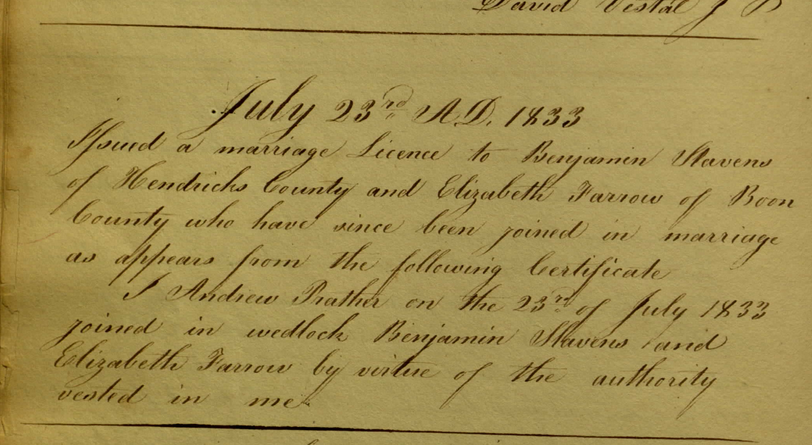 David Vestal J P
July 23rd A.D. 1833
Issued a marriage Licence to Benjamin Stavens
of Hendricks County and Elizabeth Farrow of Boon
County who have since been joined in marriage
as appears from the following Certificate
I Andrew Prather on the 23rd of July 1833
joined in wedlock Benjamin Stavens and
Elizabeth Farrow by virtue of the authority
vested in me